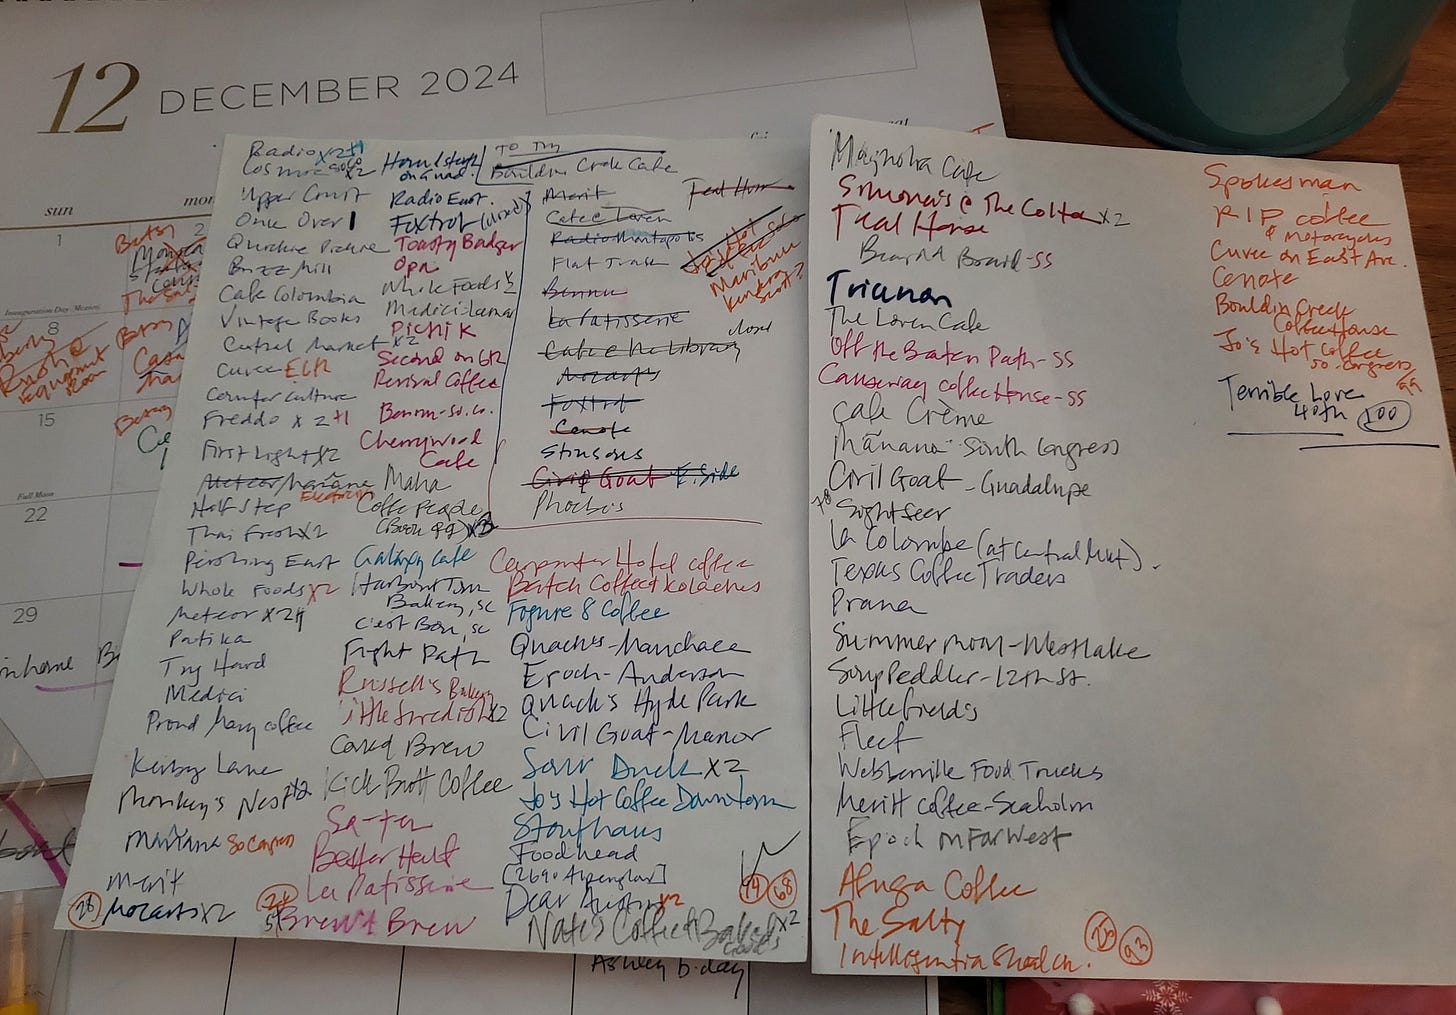 12 DECEMBER 2024
sun
1
2
8
15
22
29
Full Moon
Radio x2+1
Cosmic x2
Upper Crust
Once Over 1
Quickie Pickie
Buzz Mill
Cafe Colombia
Vintage Books
Central Market x2
Curve
Counter culture
Freddo x2+1
First Light x2
Meteor/mañana
Half Step
Thai Fresh x2
Pershing East
Whole Foods x2
Meteor x2
Patika
Try Hard
Medici
Proud Mary coffee
Kerbey Lane
Monkey's Nest x2
Mañana So Congress
Merit
28 Mozarts x2
on Guad.
Radio East.
Foxtrot (closed)
Toasty Badger
Opa
Whole Foods
Medici-Lamar
Picnik
Second on 6th
Revival Coffee
Bennu-so.co.
Cherrywood
Cafe
Maha
Coffee People
Galaxy Cafe
Harbour Town
Bakery, SC
C'est Bon, SC
Flight Path
Russell's Bakery
Little Swedish x2
Caked Brew
Kick Butt Coffee
Sa-Ten
Better Half
La Patisserie
Brew & Brew
To Try
Bouldin Creek Cafe
Merit
Cafe Loren
Radio Montopolis
Flat Track
Bennu
La Patisserie
Cafe @ the Library
closed
Mozarts
Foxtrot
Cenote
Stinsons
Civil Goat R.side
Phoebe's
Teal House
Carpenter Hotel coffee
Batch Coffee & Kolaches
Figure 8 Coffee
Quacks-Manchaca
Epoch-Anderson
Quack's Hyde Park
Civil Goat-Manor
Sour Duck x2
Jo's Hot Coffee Downtown
Stouthaus
Foodhead
Dear Austin x2
Nate's Coffee & Baked Goods x2
68
Ashley b.day
Magnolia Cafe
Simona's @ The Colton x2
Teal House
Beard & Board-SS
Trianon
The Loren Cafe
Off the Beaten Path-SS
Causeway coffee House-SS
Cafe Crème
Mañana-South Congress
Civil Goat-Guadalupe
78 Sightseer
La Colombe (at Central Mkt).
Texas Coffee Traders
Prana
Summer moon-Westlake
Soup Peddler-12th St.
Littlefield's
Fleet
Webberville Food Trucks
Merit coffee-Seaholm
Epoch on Far West
Aluga Coffee
The Salty
Intelligentsia
93
Spokesman
RIP coffee
& Motorcycles
Curve on East Ave.
Cenote
Bouldin Creek
Coffee House
Jo's Hot Coffee
so. congress
99
Terrible Love
40th 100